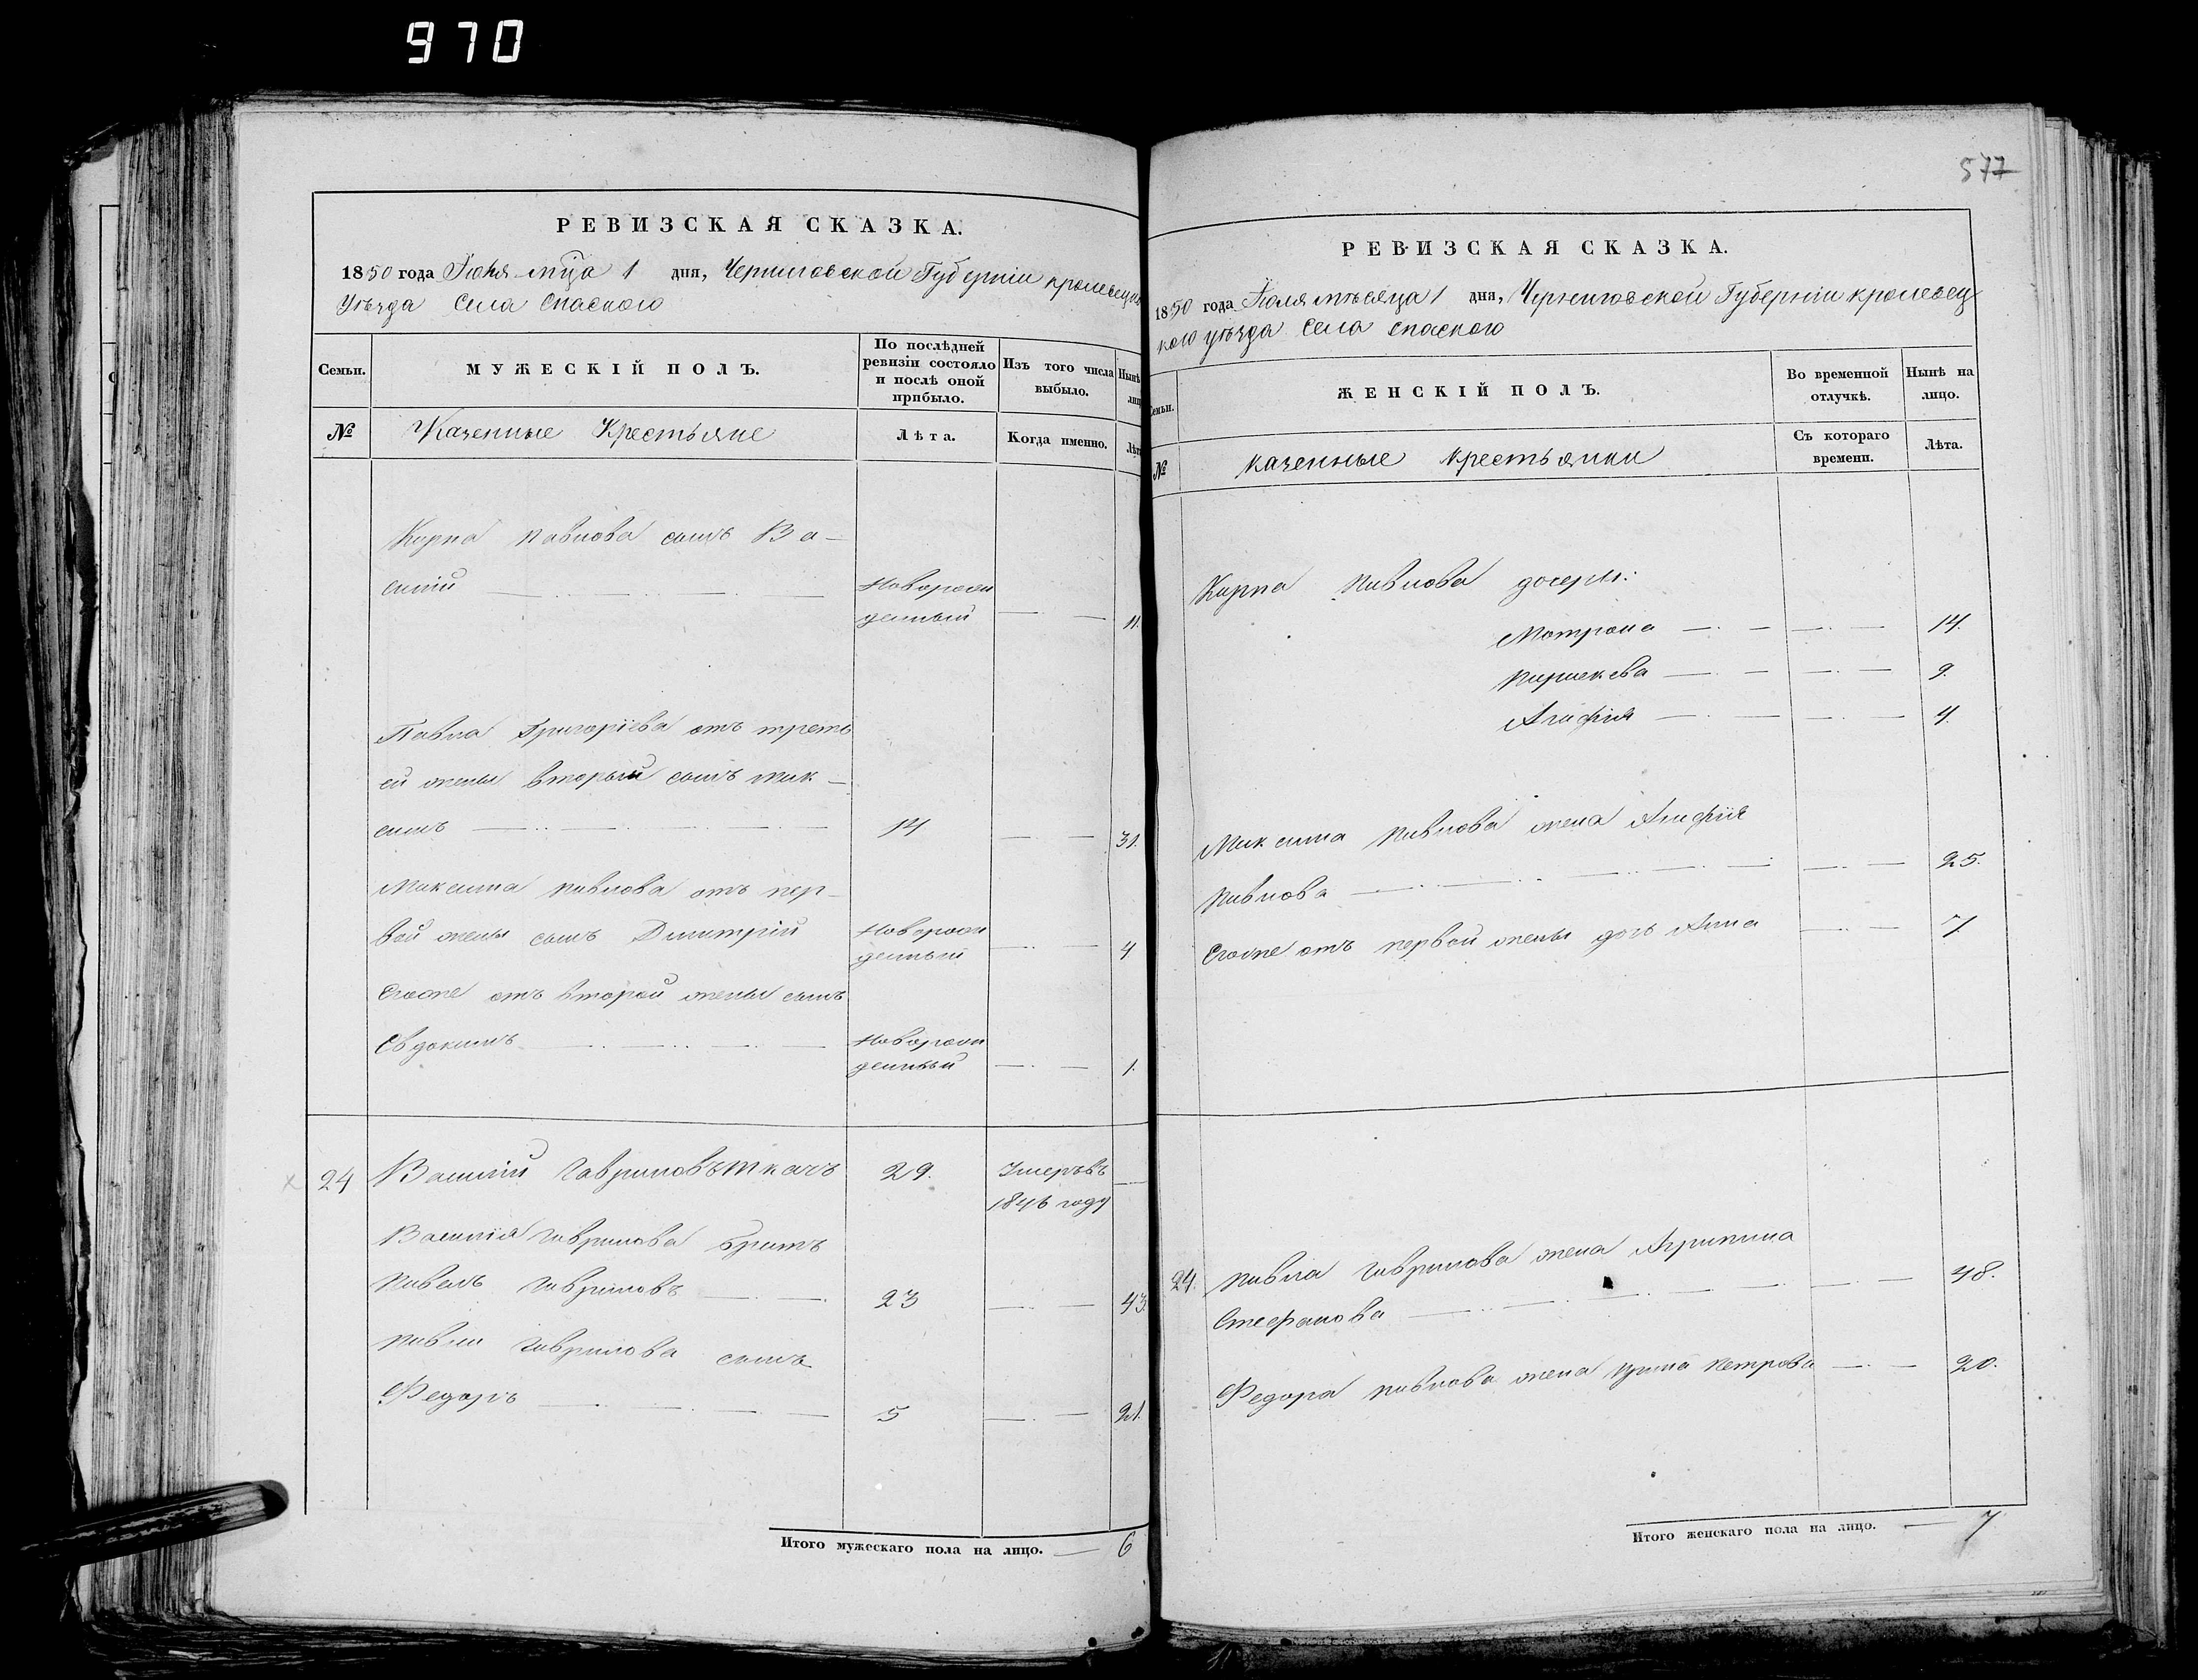 970
РЕВИЗСКАЯ СКАЗКА.
1850 года Іюня мца 1 дня, Черниговской Губерніи кролевецк
Уѣзда Села Спаского
Семьи.
МУЖЕСКІЙ ПОЛЪ.
По послѣдней ревизіи состояло и послѣ оной прибыло.
Изъ того числа выбыло.
Нынѣ лиц
№
Казенные Крестьяне
Лѣта.
Когда именно.
Лѣт
Карпа павлова сынъ Ва-
силій
Новорож
денный
11.
Павла Григоріева отъ треть
ей жены вторый сынъ мак-
симъ 14 31.
Максима павлова отъ пер-
вой жены сынъ Димитрій Новорож
денный 4
Егоже отъ второй жены сынъ
Евдокимъ Новорож
денный 1.
24 Василій Гавриловъ ткачь 29. Умеръ въ
1846 году
Василія Гаврилова братъ
павелъ Гавриловъ 23 43.
павла Гаврилова сынъ
Федоръ 5 21.
Итого мужескаго пола на лицо. 6
577
РЕВИЗСКАЯ СКАЗКА.
1850 года Іюля мѣсяца 1 дня, Черниговской Губерніи кролевец
кого уѣзда Села спаского
Семьи.
ЖЕНСКІЙ ПОЛЪ.
Во временной отлучкѣ.
Нынѣ на лицо.
№
казенные крестьянки
Съ котораго времени.
Лѣта.
Карпа павлова дочери:
Мотрона 14.
параскева 9.
Агафія 4.
Максима павлова жена Агафія
павлова 25.
Егоже отъ первой жены дочь Анна 7
24. павла Гаврилова жена Агрипина
Стефанова 48.
Федора павлова жена ирина петрова 20.
Итого женскаго пола на лицо. 7